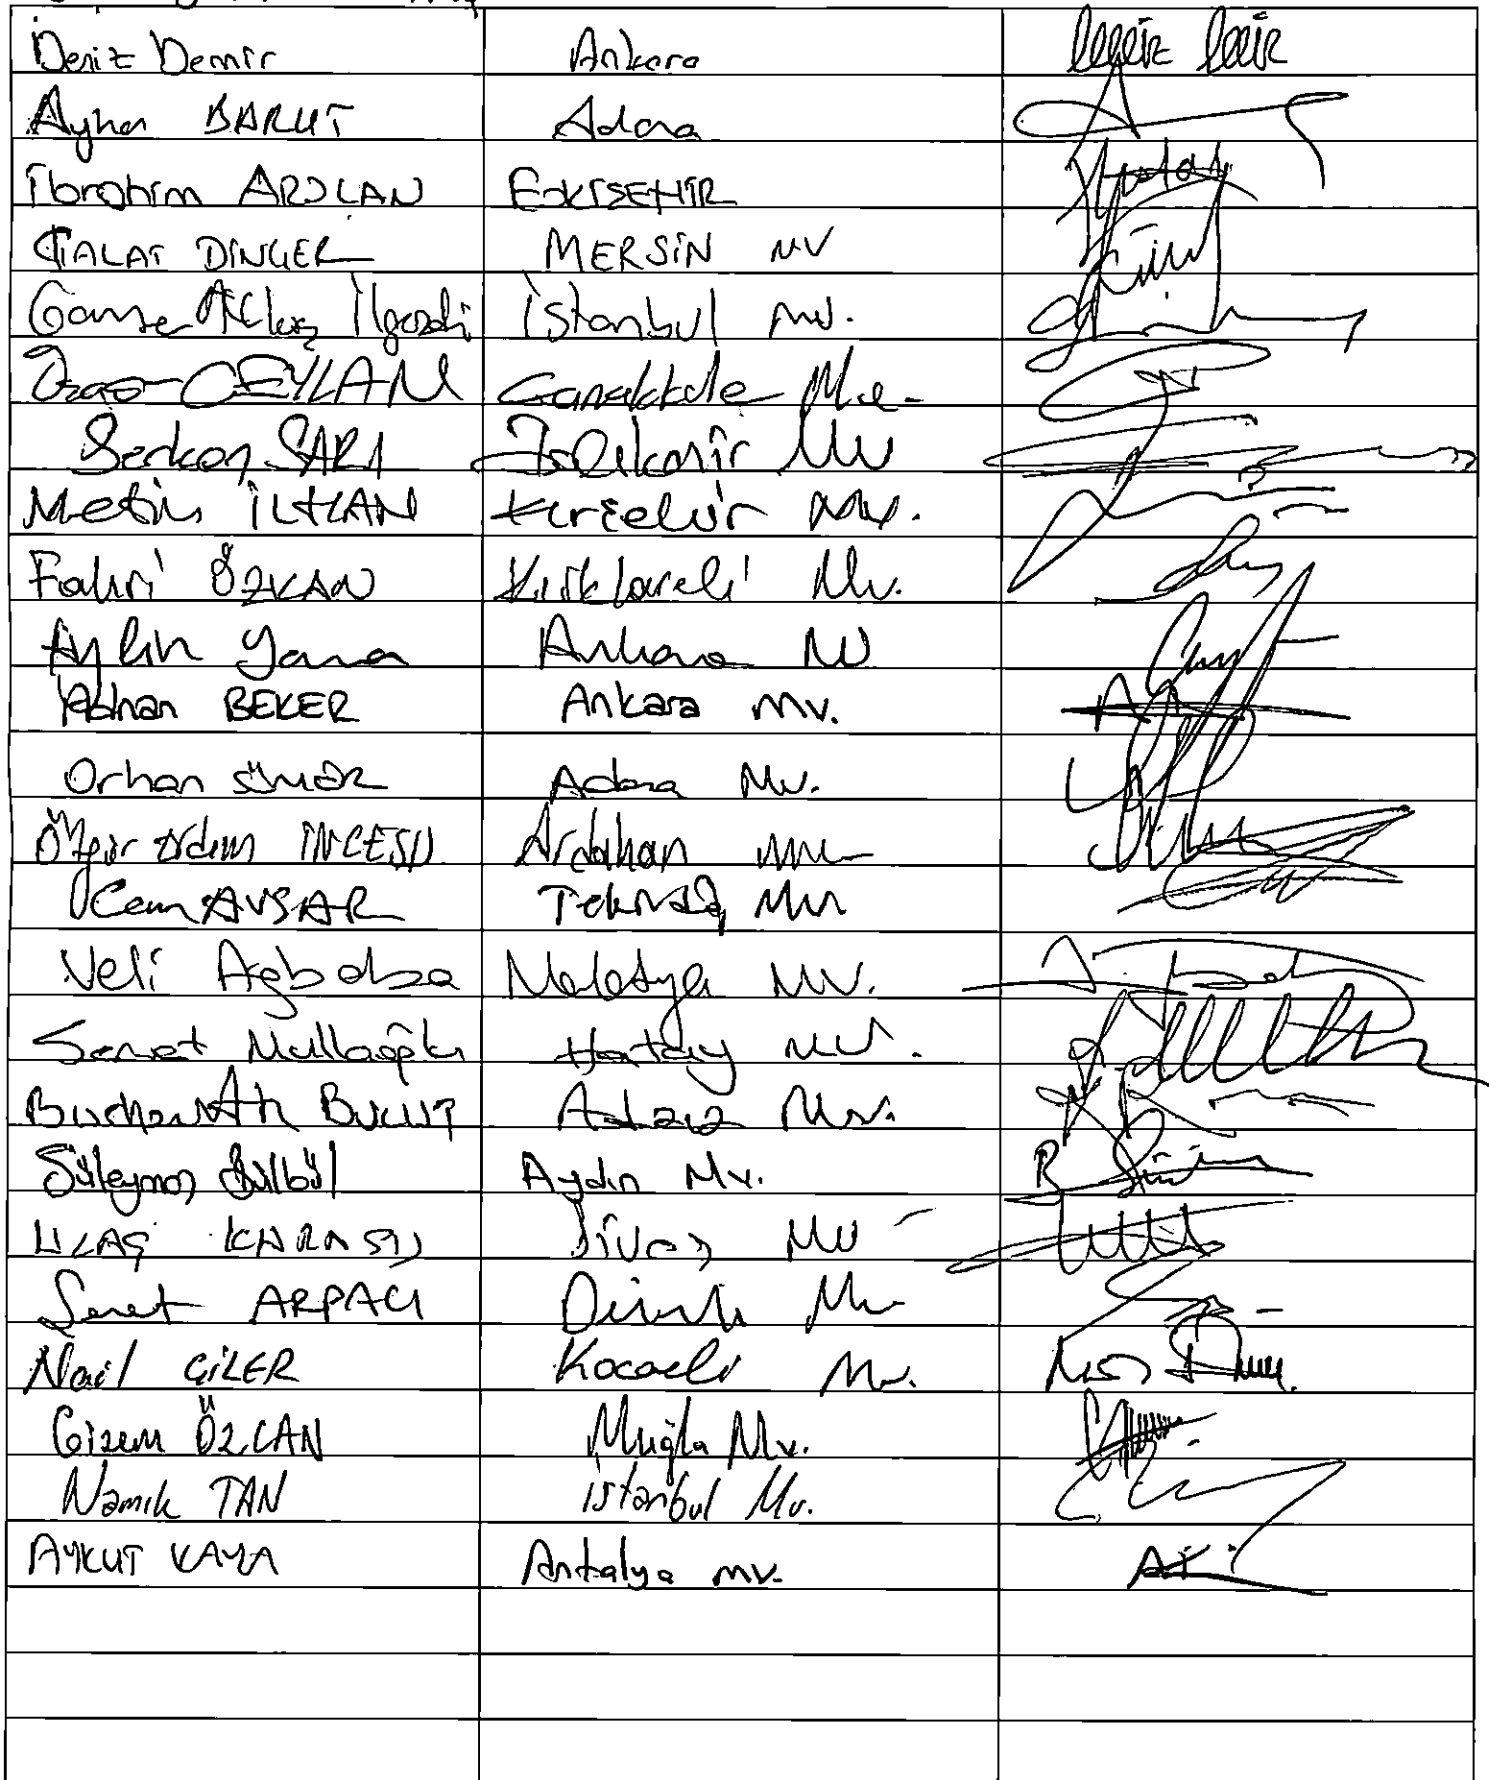 Deniz Demir Ankara
Ayhan BARUT Adana
İbrahim ARSLAN ESKİŞEHİR
TALAT DİNÇER MERSİN MV
Gamze Akkuş İlgezdi İstanbul mv.
Özgür CEYLAN Çanakkale Mv.
Serkan SARI Balıkesir Mv
Metin İLHAN Kırşehir Mv.
Fahri ÖZKAN Kırklareli Mv.
Aylin Yaman Ankara MV
Adnan BEKER Ankara mv.
Orhan SÜMER Adana Mv.
Özgür Erdem İNCESU Ardahan mv
Cem AVŞAR Tekirdağ Mv
Veli Ağbaba Malatya MV.
Servet Mullaoğlu Hatay MV.
Burhanettin BULUT Adana Mv.
Süleyman Bülbül Aydın Mv.
ULAŞ KARASU Sivas MV
Şeref ARPACI Denizli Mv
Nail ÇİLER Kocaeli Mv.
Gizem ÖZCAN Muğla Mv.
Namık TAN istanbul Mv.
AYKUT KAYA Antalya mv.